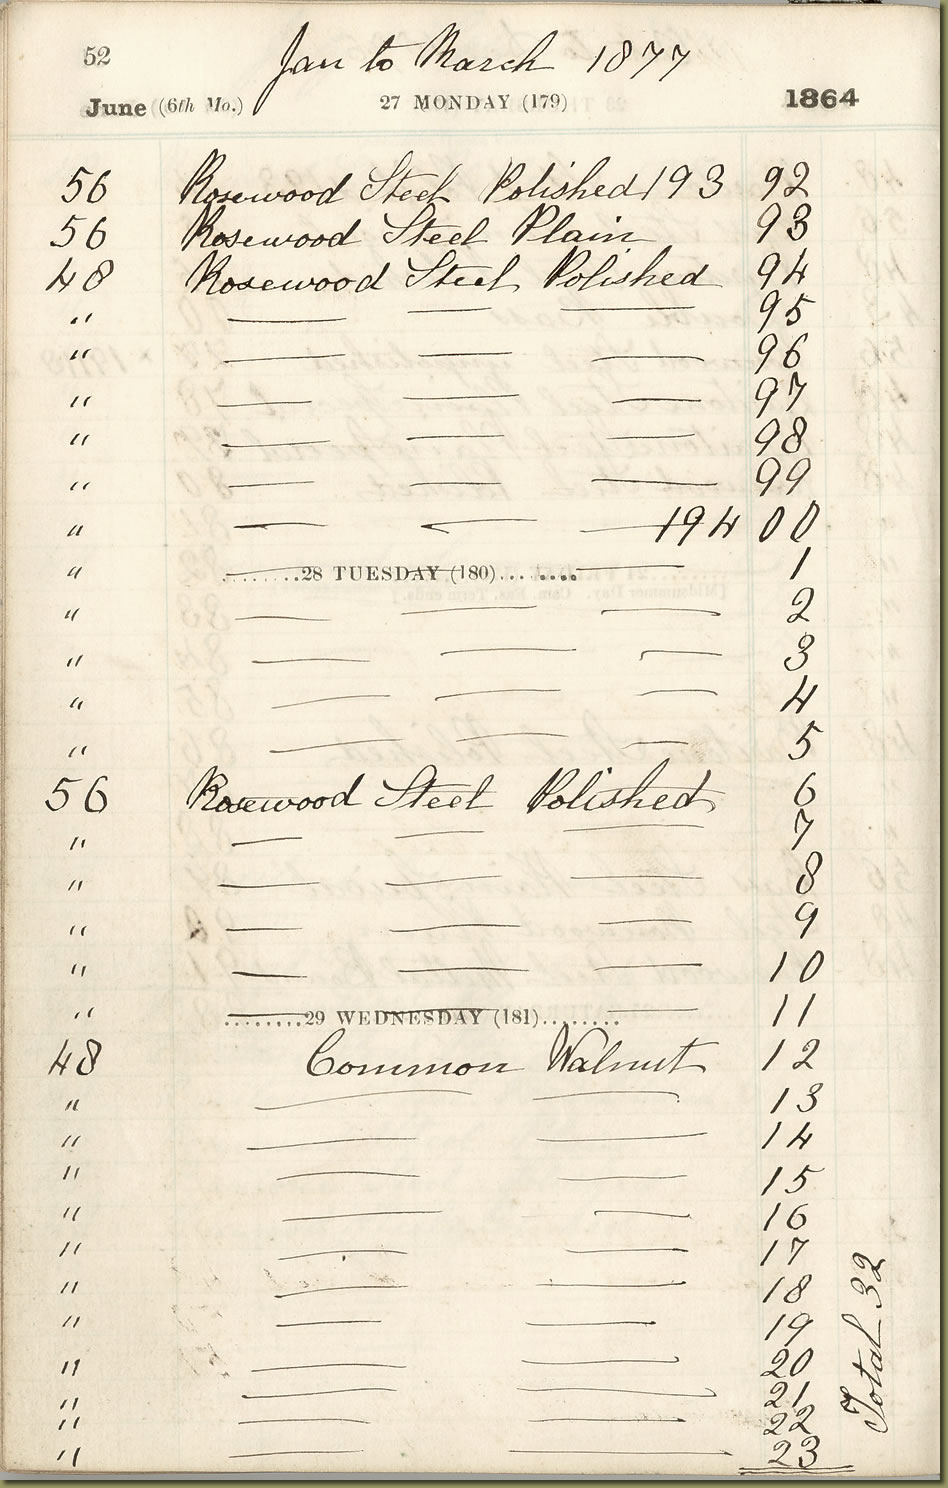 52
Jan to March 1877
June ((6th Mo.) 27 MONDAY (179) 1864
56 Rosewood Steel Polished 193 92
56 Rosewood Steel Plain 93
48 Rosewood Steel Polished 94
" — — — 95
" — — — 96
" — — — 97
" — — — 98
" — — — 99
" — — — 194 00
" — — — 1
........28 TUESDAY (180)........
" — — — 2
" — — — 3
" — — — 4
" — — — 5
56 Rosewood Steel Polished 6
" — — — 7
" — — — 8
" — — — 9
" — — — 10
" — — — 11
........29 WEDNESDAY (181)........
48 Common Walnut 12
" — — 13
" — — 14
" — — 15
" — — 16
" — — 17
" — — 18
" — — 19
" — — 20
" — — 21
" — — 22
" — — 23
Total 32